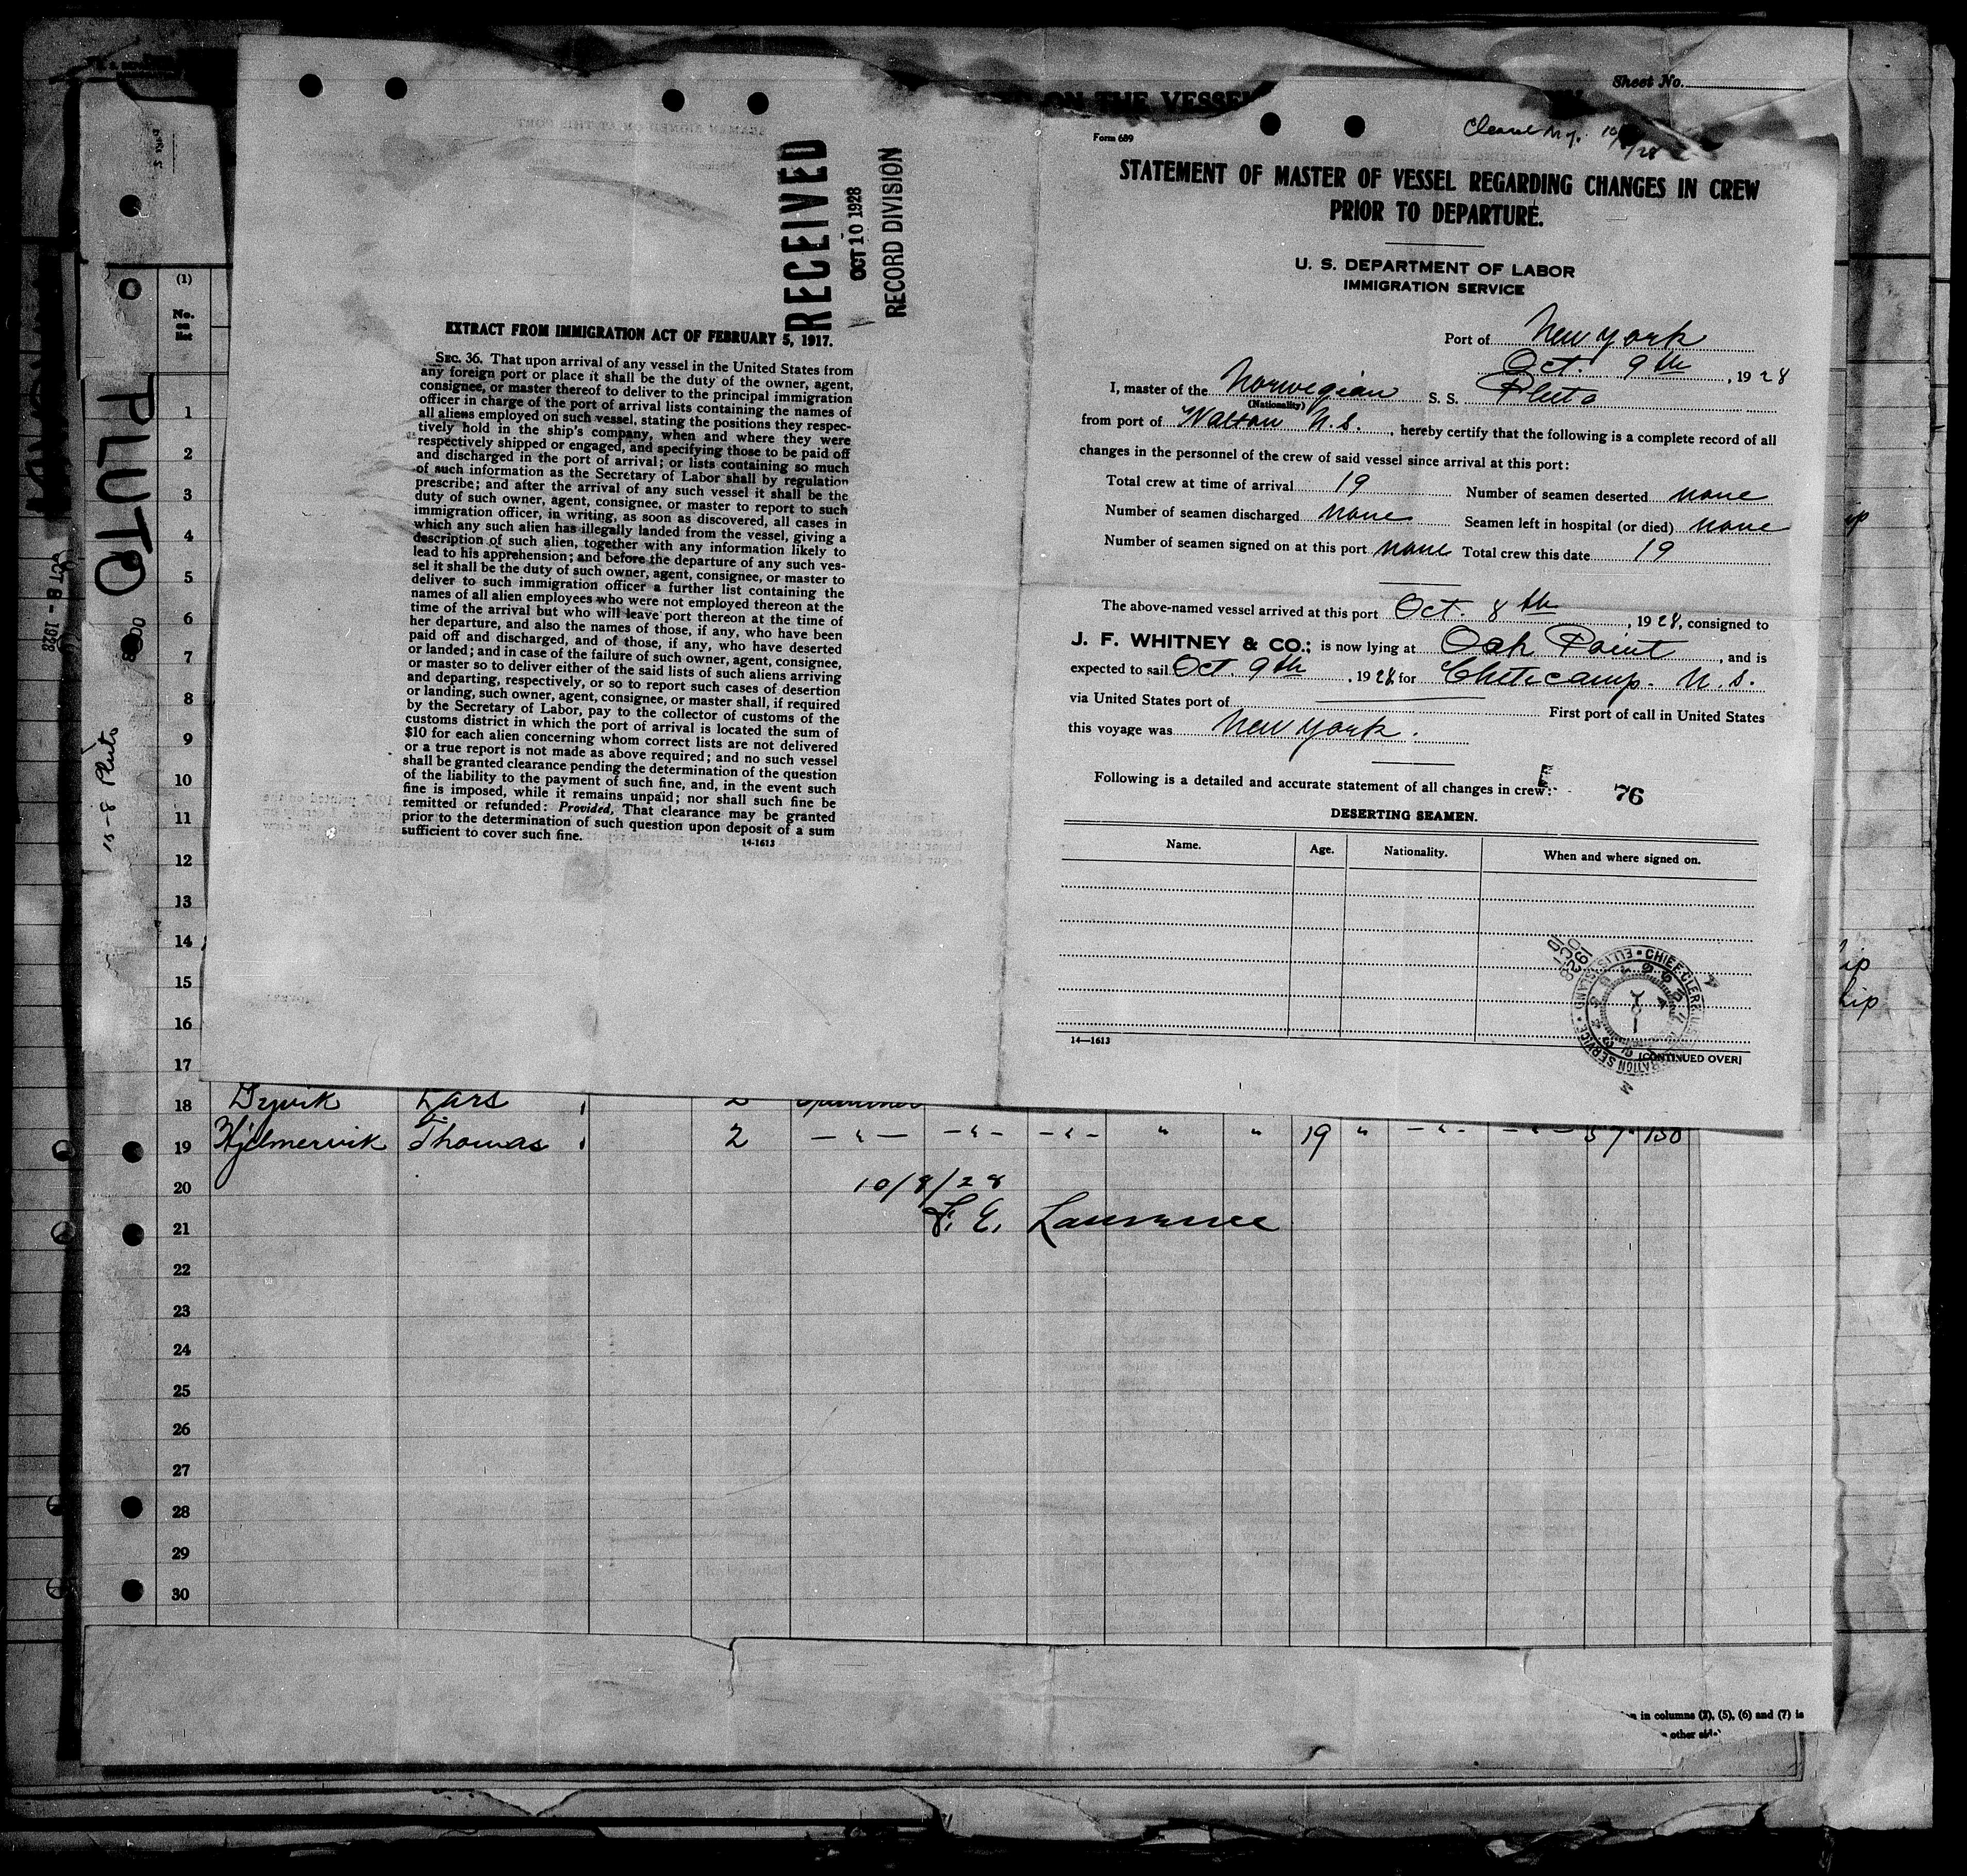 Sheet No.
ON THE VESSEL
RECEIVED
OCT 10 1928
RECORD DIVISION
EXTRACT FROM IMMIGRATION ACT OF FEBRUARY 5, 1917.
SEC. 36. That upon arrival of any vessel in the United States from
any foreign port or place it shall be the duty of the owner, agent,
consignee, or master thereof to deliver to the principal immigration
officer in charge of the port of arrival lists containing the names of
all aliens employed on such vessel, stating the positions they respec-
tively hold in the ship's company, when and where they were
respectively shipped or engaged, and specifying those to be paid off
and discharged in the port of arrival; or lists containing so much
of such information as the Secretary of Labor shall by regulation
prescribe; and after the arrival of any such vessel it shall be the
duty of such owner, agent, consignee, or master to report to such
immigration officer, in writing, as soon as discovered, all cases in
which any such alien has illegally landed from the vessel, giving a
description of such alien, together with any information likely to
lead to his apprehension; and before the departure of any such ves-
sel it shall be the duty of such owner, agent, consignee, or master to
deliver to such immigration officer a further list containing the
names of all alien employees who were not employed thereon at the
time of the arrival but who will leave port thereon at the time of
her departure, and also the names of those, if any, who have been
paid off and discharged, and of those, if any, who have deserted
or landed; and in case of the failure of such owner, agent, consignee,
or master so to deliver either of the said lists of such aliens arriving
and departing, respectively, or so to report such cases of desertion
or landing, such owner, agent, consignee, or master shall, if required
by the Secretary of Labor, pay to the collector of customs of the
customs district in which the port of arrival is located the sum of
$10 for each alien concerning whom correct lists are not delivered
or a true report is not made as above required; and no such vessel
shall be granted clearance pending the determination of the question
of the liability to the payment of such fine, and, in the event such
fine is imposed, while it remains unpaid; nor shall such fine be
remitted or refunded: Provided, That clearance may be granted
prior to the determination of such question upon deposit of a sum
sufficient to cover such fine.
14-1613
Form 689
STATEMENT OF MASTER OF VESSEL REGARDING CHANGES IN CREW
PRIOR TO DEPARTURE.
U. S. DEPARTMENT OF LABOR
IMMIGRATION SERVICE
Port of New York
Oct. 9th, 1928
I, master of the Norwegian S. S. Pluto
(Nationality)
from port of Walton N.S., hereby certify that the following is a complete record of all
changes in the personnel of the crew of said vessel since arrival at this port:
Total crew at time of arrival 19 Number of seamen deserted none
Number of seamen discharged none Seamen left in hospital (or died) none
Number of seamen signed on at this port none Total crew this date 19
The above-named vessel arrived at this port Oct. 8th, 1928, consigned to
J. F. WHITNEY & CO.; is now lying at Oak Point, and is
expected to sail Oct. 9th, 1928 for Cheticamp. N.S.
via United States port of First port of call in United States
this voyage was New York.
Following is a detailed and accurate statement of all changes in crew:
76
DESERTING SEAMEN.
Name. Age. Nationality. When and where signed on.
14—1613
(CONTINUED OVER)
PLUTO
OCT 8 - 1928
10-8 Pluto
(1)
No.
on
list
1
2
3
4
5
6
7
8
9
10
11
12
13
14
15
16
17
18 Lars
19 Hjelmervik Thomas 2 " " 19 " 5 7 150
20 10/8/28
21 F. E. Lawrence
22
23
24
25
26
27
28
29
30
in columns (2), (5), (6) and (7) is
other side